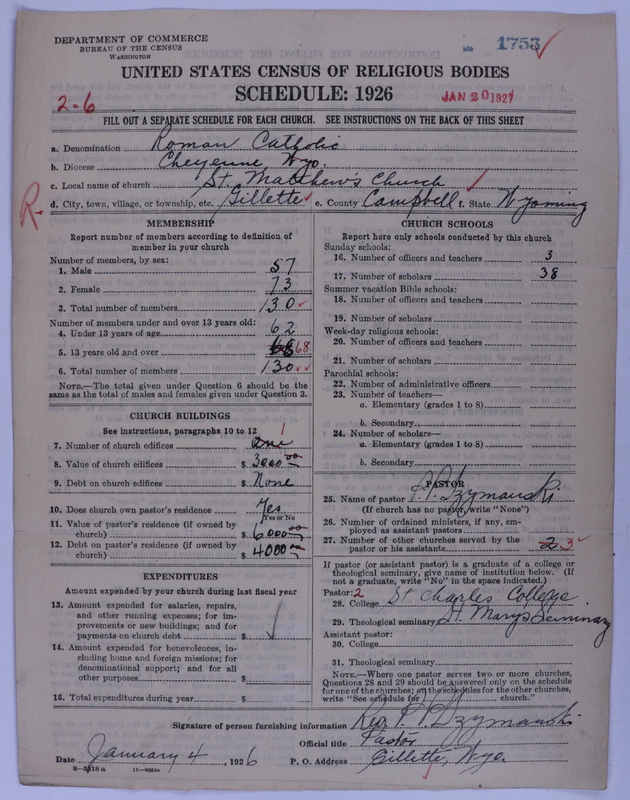 DEPARTMENT OF COMMERCE
BUREAU OF THE CENSUS
WASHINGTON
1753
UNITED STATES CENSUS OF RELIGIOUS BODIES
SCHEDULE: 1926
2-6
JAN 20 1927
FILL OUT A SEPARATE SCHEDULE FOR EACH CHURCH. SEE INSTRUCTIONS ON THE BACK OF THIS SHEET
a. Denomination Roman Catholic
b. Diocese Cheyenne, Wyo.
c. Local name of church St. Matthew's Church
R.
d. City, town, village, or township, etc. Gillette e. County Campbell f. State Wyoming
MEMBERSHIP
Report number of members according to definition of
member in your church
Number of members, by sex:
1. Male 57
2. Female 73
3. Total number of members 130
Number of members under and over 13 years old:
4. Under 13 years of age 62
5. 13 years old and over 68 68
6. Total number of members 130
NOTE.—The total given under Question 6 should be
same as the total of males and females given under Question 3.
CHURCH BUILDINGS
See instructions, paragraphs 10 to 12
1
7. Number of church edifices one
8. Value of church edifices $ 3000 00
9. Debt on church edifices $ None
10. Does church own pastor's residence? Yes
Yes or No
11. Value of pastor's residence (if owned by
church) $ 6000 00
12. Debt on pastor's residence (if owned by
church) $ 4000 00
EXPENDITURES
Amount expended by your church during last fiscal year
13. Amount expended for salaries, repairs,
and other running expenses; for im-
provements or new buildings; and for
payments on church debt $
14. Amount expended for benevolences, in-
cluding home and foreign missions; for
denominational support; and for all
other purposes $
15. Total expenditures during year $
CHURCH SCHOOLS
Report here only schools conducted by this church
Sunday schools:
16. Number of officers and teachers 3
17. Number of scholars 38
Summer vacation Bible schools:
18. Number of officers and teachers
19. Number of scholars
Week-day religious schools:
20. Number of officers and teachers
21. Number of scholars
Parochial schools:
22. Number of administrative officers
23. Number of teachers—
a. Elementary (grades 1 to 8)
b. Secondary
24. Number of scholars—
a. Elementary (grades 1 to 8)
b. Secondary
PASTOR
25. Name of pastor P. P. Szymanski
(If church has no pastor, write "None")
26. Number of ordained ministers, if any, em-
ployed as assistant pastors
27. Number of other churches served by the
pastor or his assistants 2 3
If pastor (or assistant pastor) is a graduate of a college or
theological seminary, give name of institution below. (If
not a graduate, write "No" in the space indicated.)
Pastor: 2
28. College St Charles College
29. Theological seminary St. Mary's Seminary
Assistant pastor:
30. College
31. Theological seminary
NOTE.—Where one pastor serves two or more churches,
Questions 28 and 29 should be answered only on the schedule
for one of the churches; on the schedules for the other churches,
write "See schedule for church."
Signature of person furnishing information Rev. P. P. Szymanski
Official title Pastor
Date January 4, 1926 P. O. Address Gillette, Wyo.